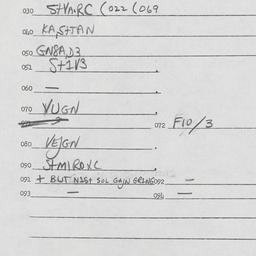 030 S+VA.RC (022 (069
040 KA,S+TAN
050 GN8A,D3
051 S+1V3 .
060 — .
070 VUGN
072 F10/3
080 VEJGN .
090 S+MIROXC .
091 + BUT NIS+ SOL GAIN GRING 092 —
093 — 096 —